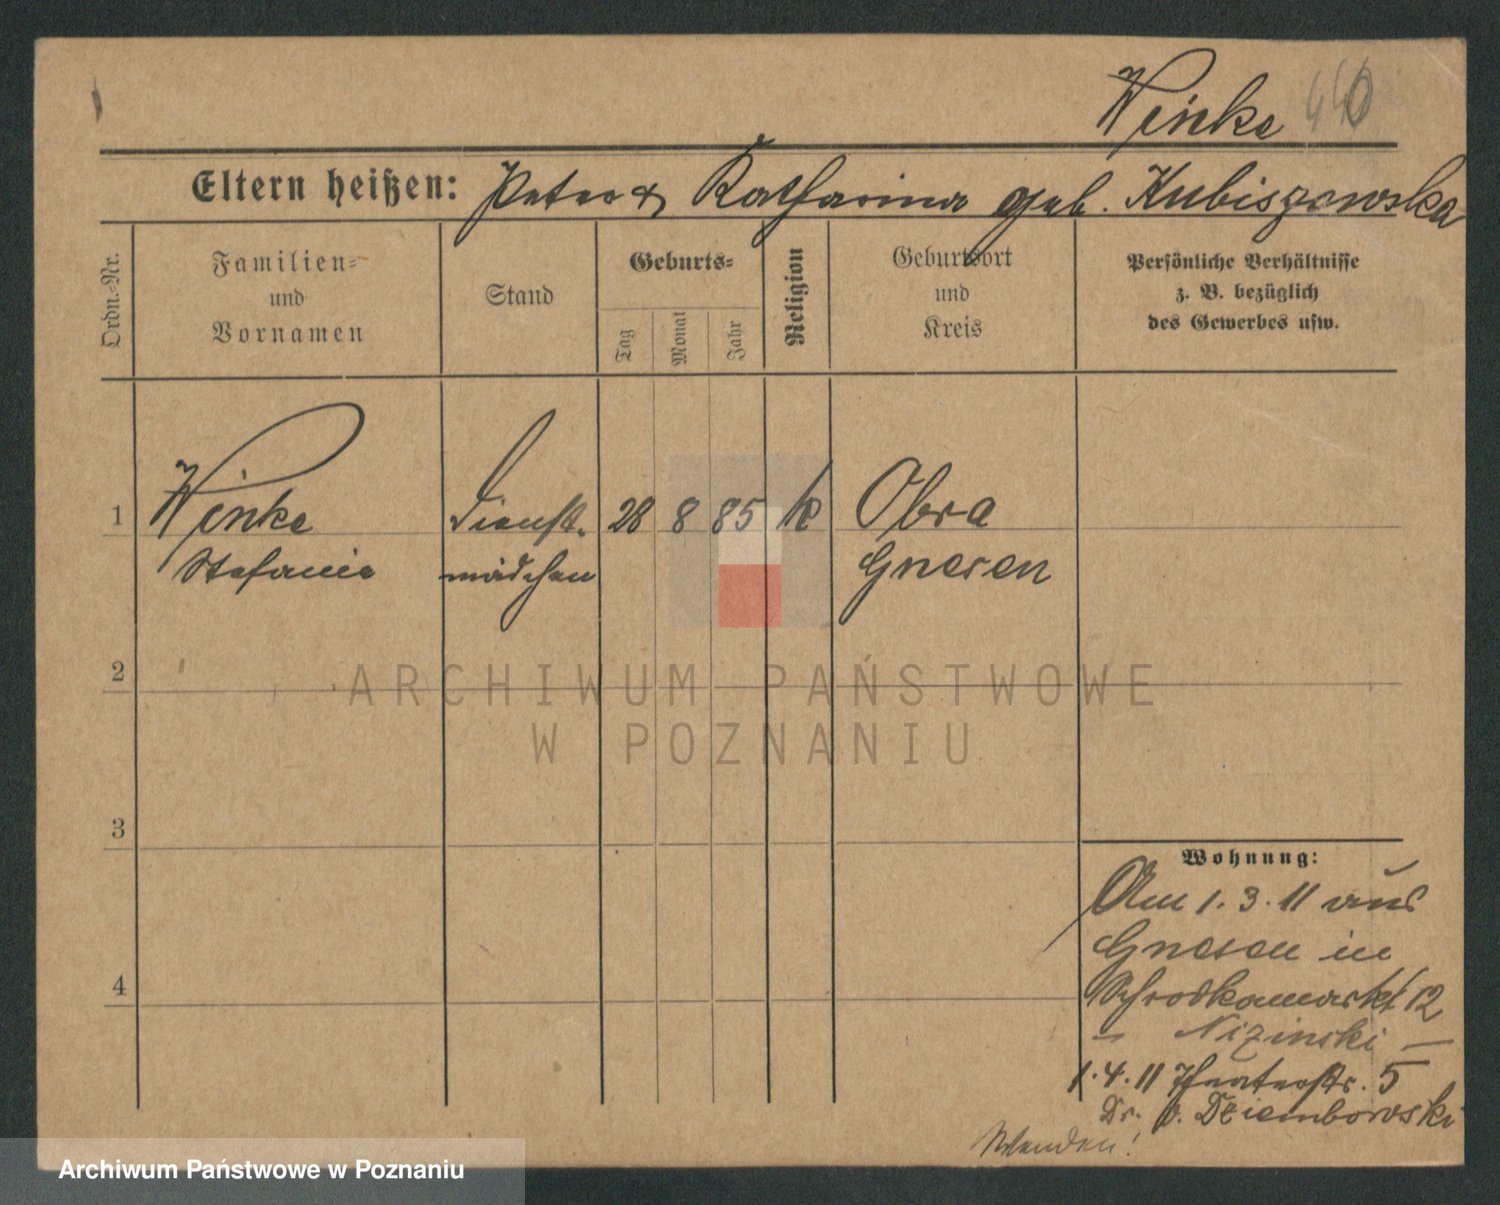 Winke
Eltern heißen: Peter & Katharina geb. Kubiszowska
Ordn.-Nr.
Familien- und Vornamen
Stand
Geburts-
Tag
Monat
Jahr
Religion
Geburtsort
und
Kreis
Persönliche Verhältnisse
z. B. bezüglich
des Gewerbes usw.
1 Winke Dienst- 28 8 85 k Obra
Stefanie mädchen Gnesen
2
3
4
Wohnung:
Am 1.3.11 aus
Gnesen in
Schrodkamarkt 12
– Nizinski –
1.4.11 Theaterstr. 5
Dr. v. Dziembowski
Wenden!
ARCHIWUM PAŃSTWOWE
W POZNANIU
Archiwum Państwowe w Poznaniu